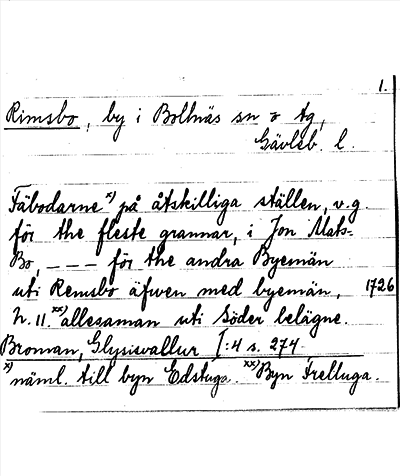 1.
Rimsbo, by i Bollnäs sn o tg,
Gävleb. l.
Fäbodarne x) på åtskilliga ställen, v.g.
för the fleste grannar, i Jon Mats-
Bo, — — — för the andra Byemän
uti Remsbo äfwen med byemän, 1726
h. 11. xx) allesaman uti Söder belägne.
Broman, Glysisvallur I:4 s. 274
x) näml. till byn Edstuga. xx) Byn Frelluga.